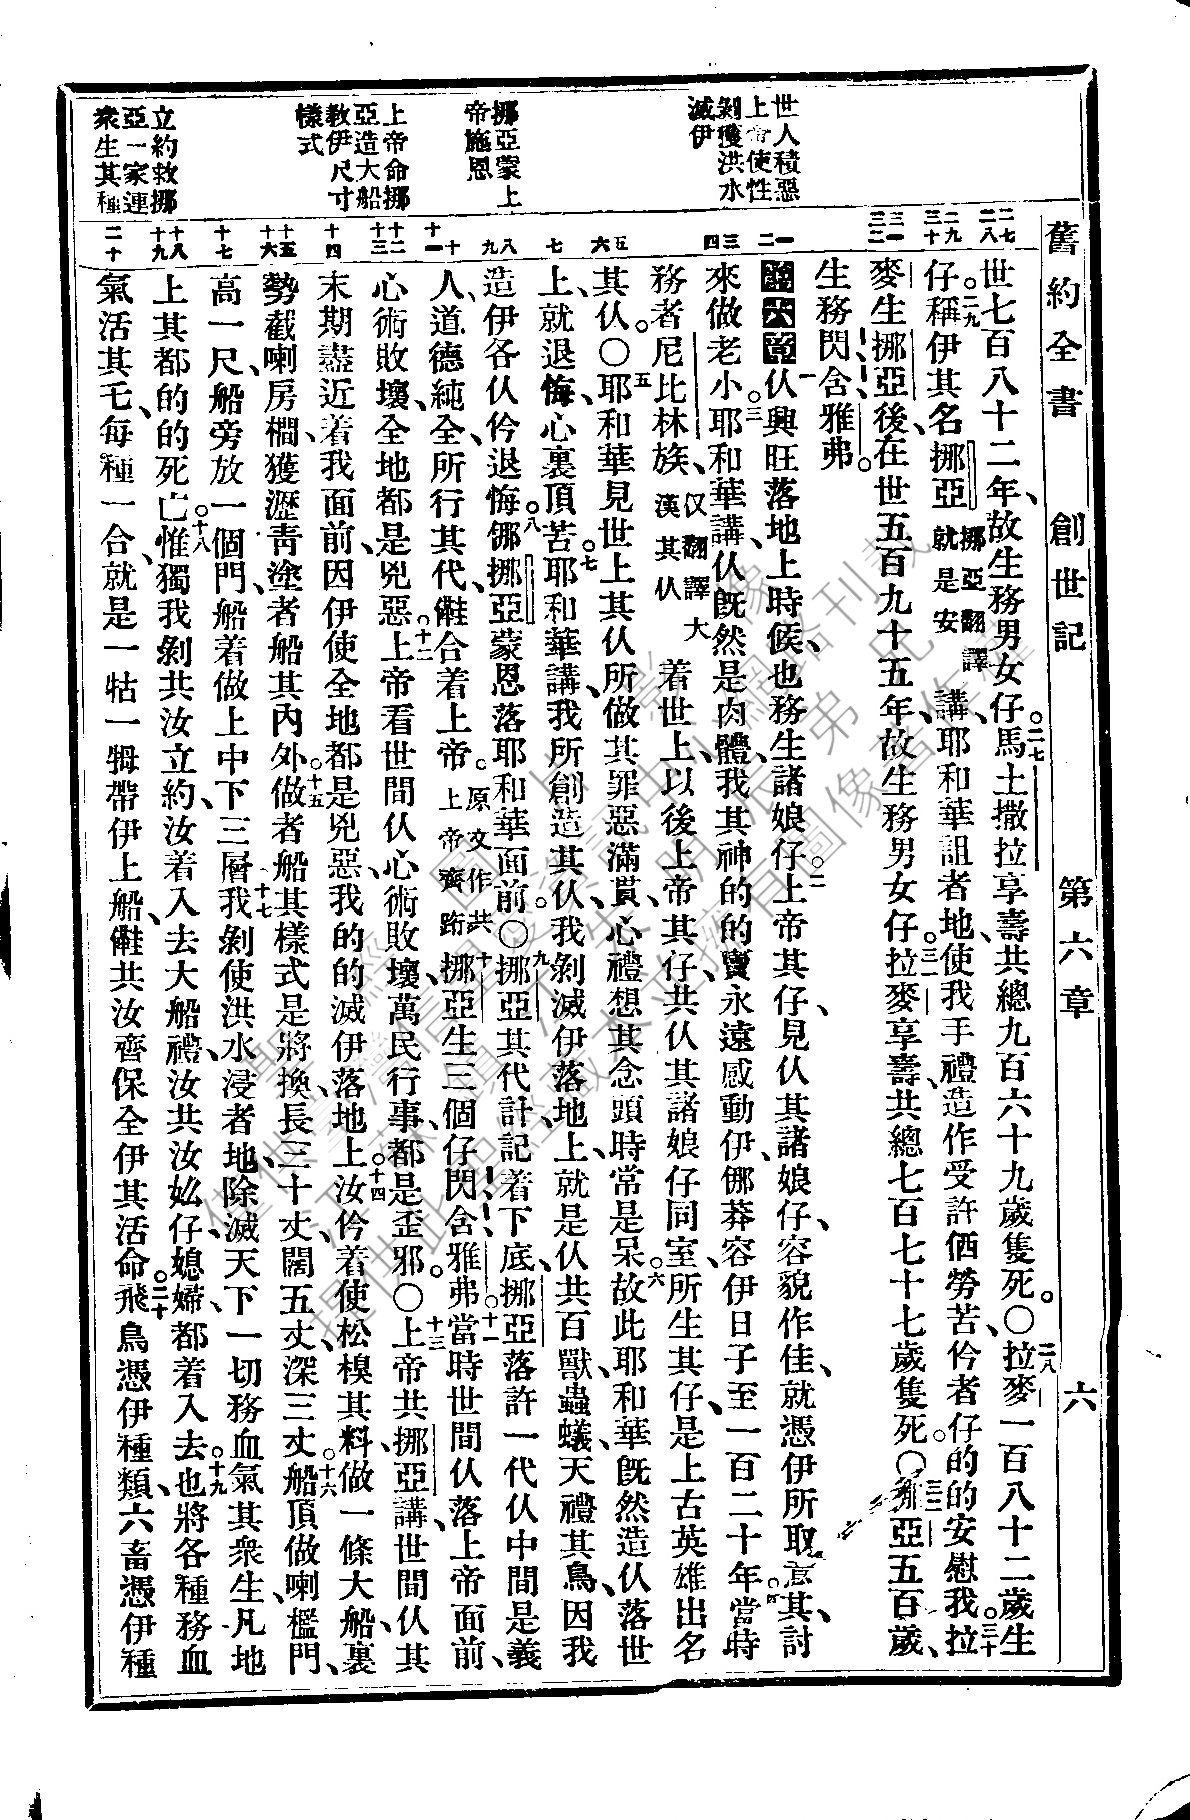 舊約全書 創世記 第六章 六
世人積惡
上帝使性
剝獲洪水
滅伊
挪亞蒙上
帝施恩
上帝命挪
亞造大船
教伊尺寸
樣式
立約救挪
亞一家連
衆生其種
二七 二八
二九 三十
三一 三二
一 二
三 四
五 六
七
八 九
十 十一
十二 十三
十四
十五 十六
十七
十八 十九
二十
世七百八十二年、故生務男女仔。二七馬土撒拉享壽、共總九百六十九歲隻死。〇二八拉麥一百八十二歲生
仔。二九稱伊其名挪亞挪亞翻譯就是安講、耶和華詛者地、使我手禮造作受許価勞苦、仱者仔的的安慰我。三十拉
麥生挪亞後、在世五百九十五年、故生務男女仔。三一拉麥享壽、共總七百七十七歲隻死。〇三二挪亞五百歲、
生務閃、含、雅弗。
第六章 一仈興旺落地上時候、也務生諸娘仔。二上帝其仔、見仈其諸娘仔、容貌作佳、就憑伊所取意其討
來做老小。三耶和華講、仈旣然是肉體、我其神的的賣永遠感動伊、哪莽容伊日子至一百二十年。四當時
務者尼比林族、仅翻譯大漢其仈着世上、以後上帝其仔、共仈其諸娘仔同室、所生其仔、是上古英雄出名
其仈。〇五耶和華見世上其仈、所做其罪惡滿貫、心禮想其念頭、時常是呆。六故此耶和華旣然造仈落世
上、就退悔、心裏頂苦。七耶和華講、我所創造其仈、我剝滅伊落地上、就是仈共百獸、蟲蟻、天禮其鳥、因我
造伊各仈、仱退悔。八哪挪亞蒙恩落耶和華面前。〇九挪亞其代計、記着下底、挪亞落許一代仈中間、是義
人、道德純全、所行其代、𣍐合着上帝。原文作共上帝齊跡十挪亞生三個仔、閃、含、雅弗。十一當時世間仈落上帝面前、
心術敗壞、全地都是兇惡。十二上帝看世間仈心術敗壞、萬民行事、都是歪邪。〇十三上帝共挪亞講、世間仈其
末期盡近着我面前、因伊使全地都是兇惡、我的的滅伊落地上。十四汝仱着使松模其料、做一條大船、裏
勢截喇房櫊、獲瀝靑塗者船其內外。十五做者船其樣式是將換、長三十丈、闊五丈、深三丈。十六船頂做喇檻門、
高一尺、船旁放一個門、船着做上中下三層。十七我剝使洪水浸者地、除滅天下一切務血氣其衆生、凡地
上其都的的死亡。十八惟獨我剝共汝立約、汝着入去大船禮、汝共汝㚢、仔、媳婦、都着入去。十九也將各種務血
氣活其乇、每種一合、就是一牯一牳、帶伊上船、𣍐共汝齊保全伊其活命。二十飛鳥憑伊種類、六畜憑伊種